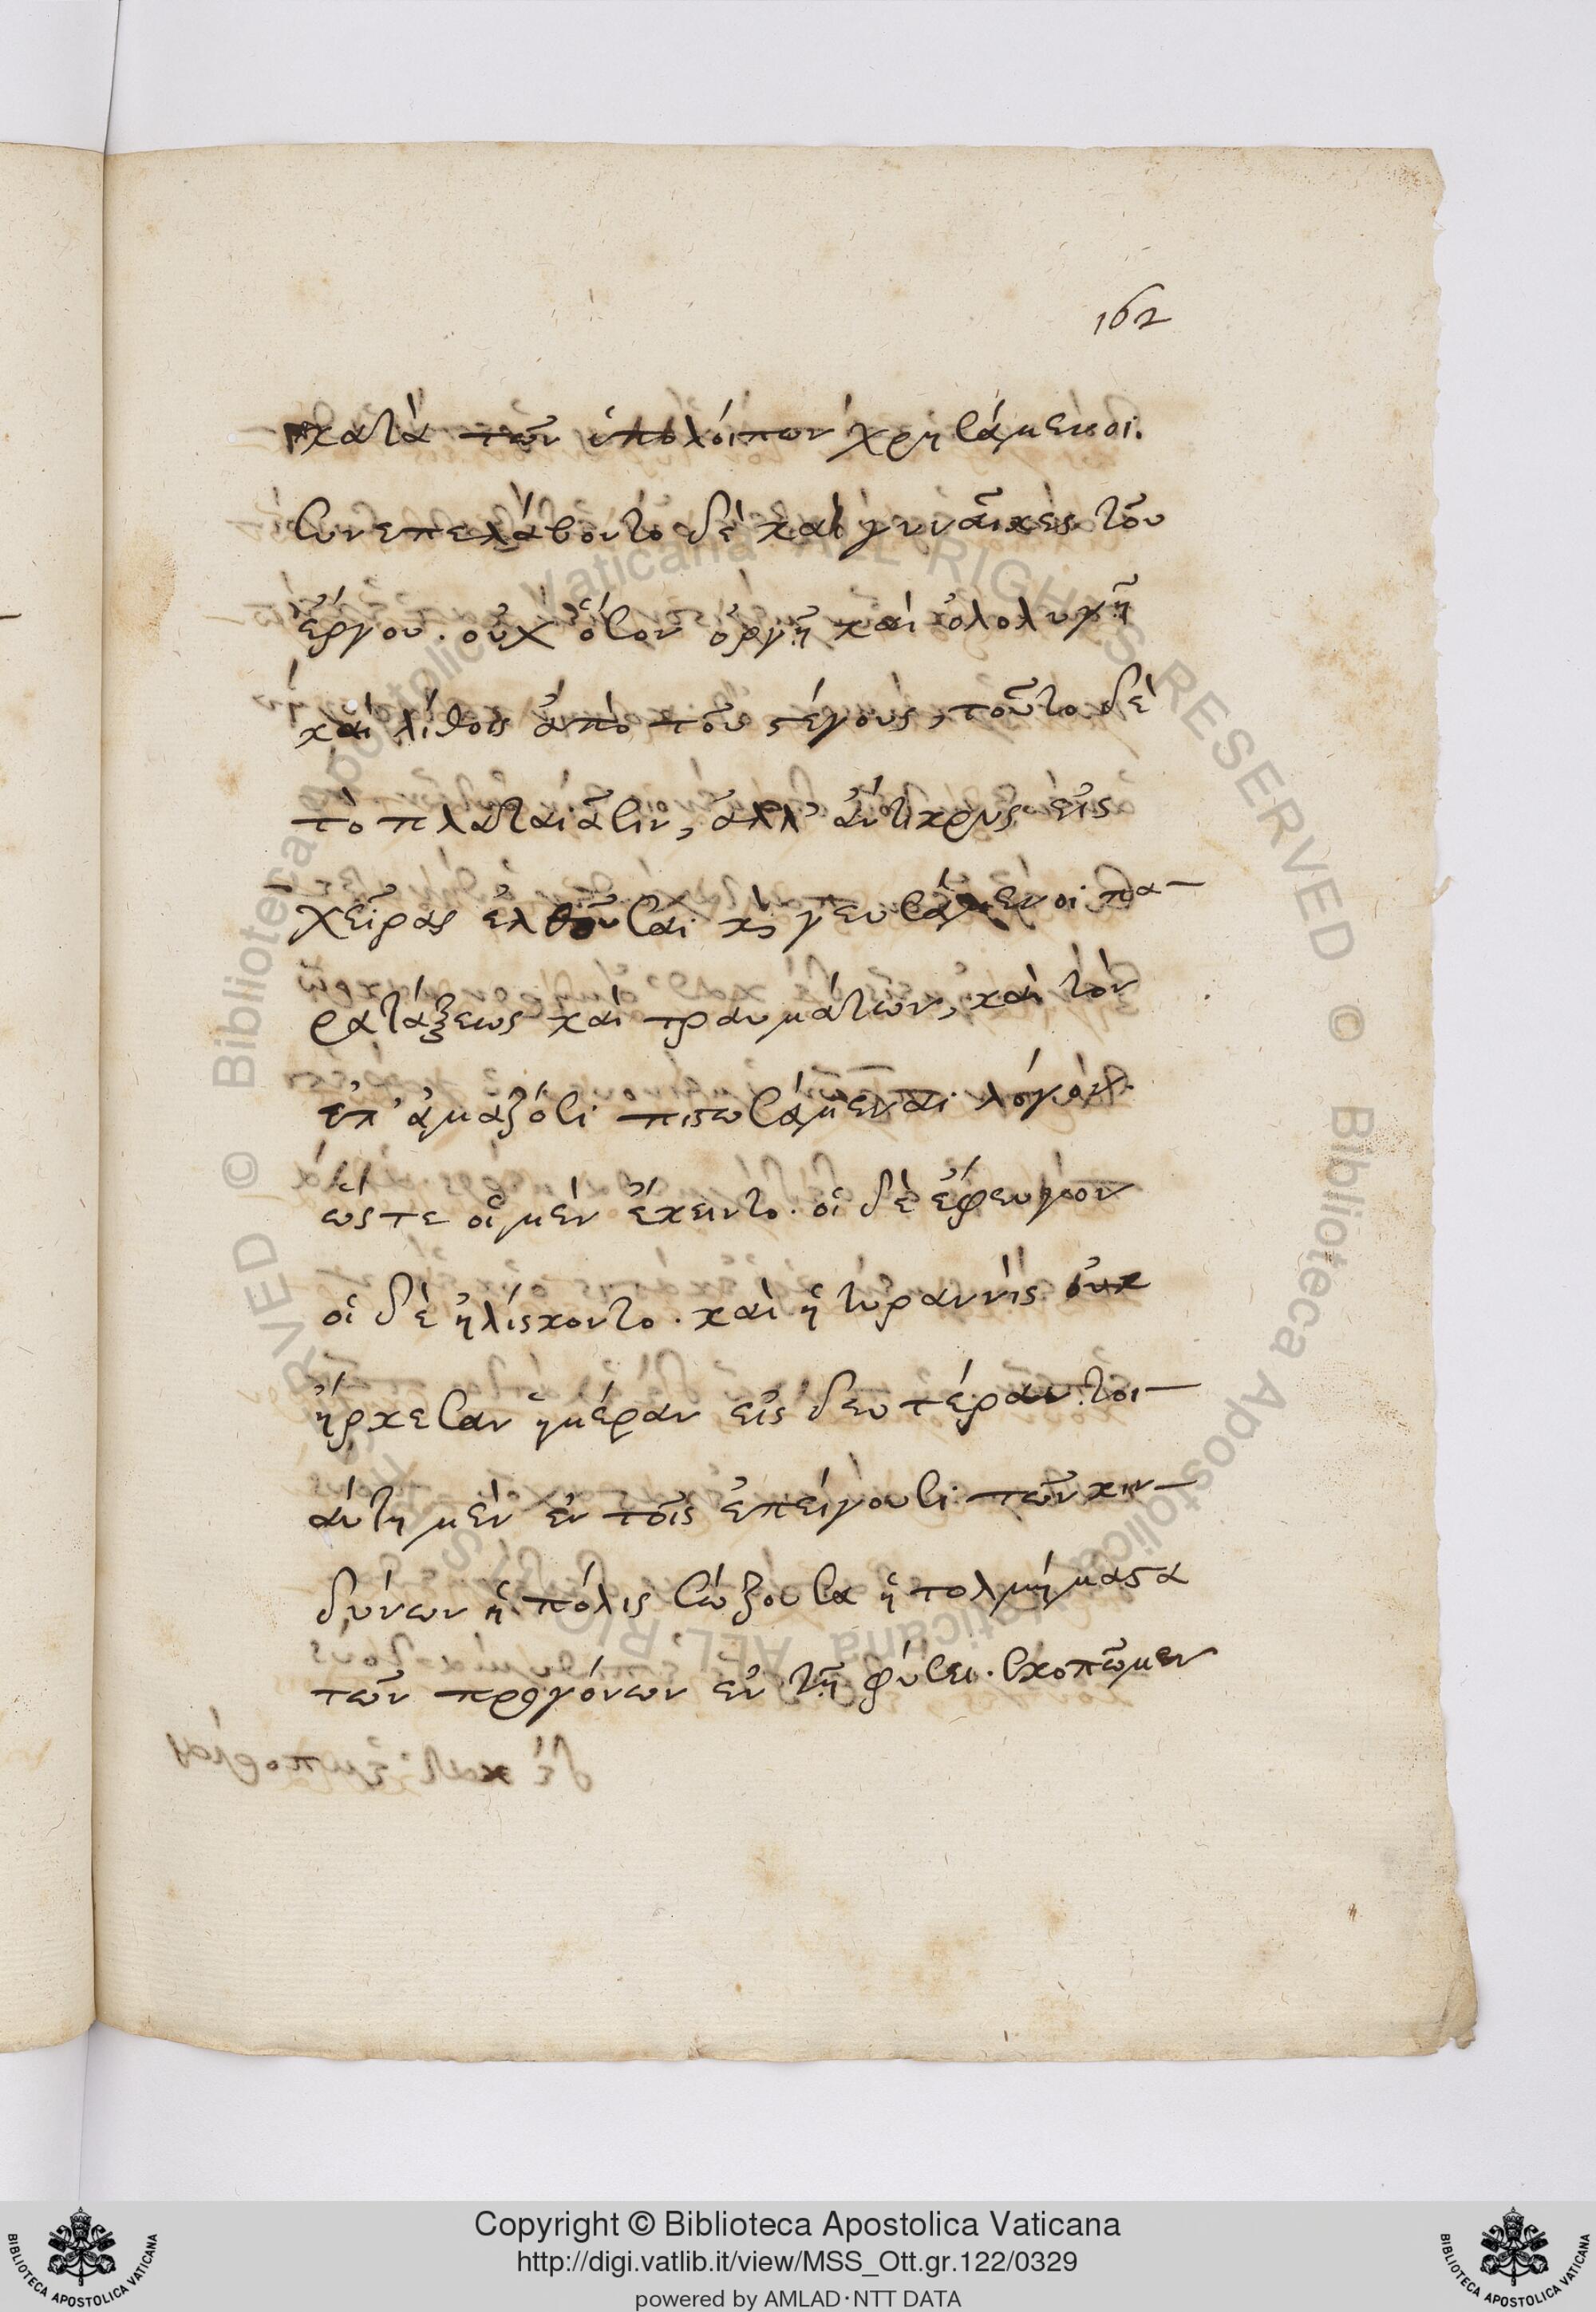 162
κατὰ τῶν ὑπολοίπων χρησάμενοι.
συνεπελάβοντο δὲ καὶ γυναῖκες τοῦ
ἔργου. οὐχ ὅσον ὀργῇ καὶ ὀλολυγῇ
καὶ λίθοις ἀπὸ τοῦ τέγους, τοῦτο δὴ
τὸ πλαταιᾶσιν, ἀλλ' ἄντικρυς εἰς
χεῖρας ἐλθοῦσαι κὶ γευσάμενοι πα-
ρατάξεως καὶ τραυμάτων, καὶ τὸν
ἐπ' ἀμαζόσι πιστωσάμεναι λόγον.
ὥστε οἱ μὲν ἔκειντο. οἱ δὲ ἔφευγον
οἱ δὲ ἡλίσκοντο. καὶ ἡ τυραννὶς οὐκ
ἤρκεσαν ἡμέραν εἰς δευτέραν. τοι-
αύτη μὲν ἐν τοῖς ἐπείγουσι τῶν κιν-
δύνων ἡ πόλις σώζουσα ἡ τολμήματα
τῶν προγόνων ἐν τῇ φύσει. σκοπῶμεν
Copyright © Biblioteca Apostolica Vaticana
http://digi.vatlib.it/view/MSS_Ott.gr.122/0329
powered by AMLAD·NTT DATA
BIBLIOTECA APOSTOLICA VATICANA
BIBLIOTECA APOSTOLICA VATICANA